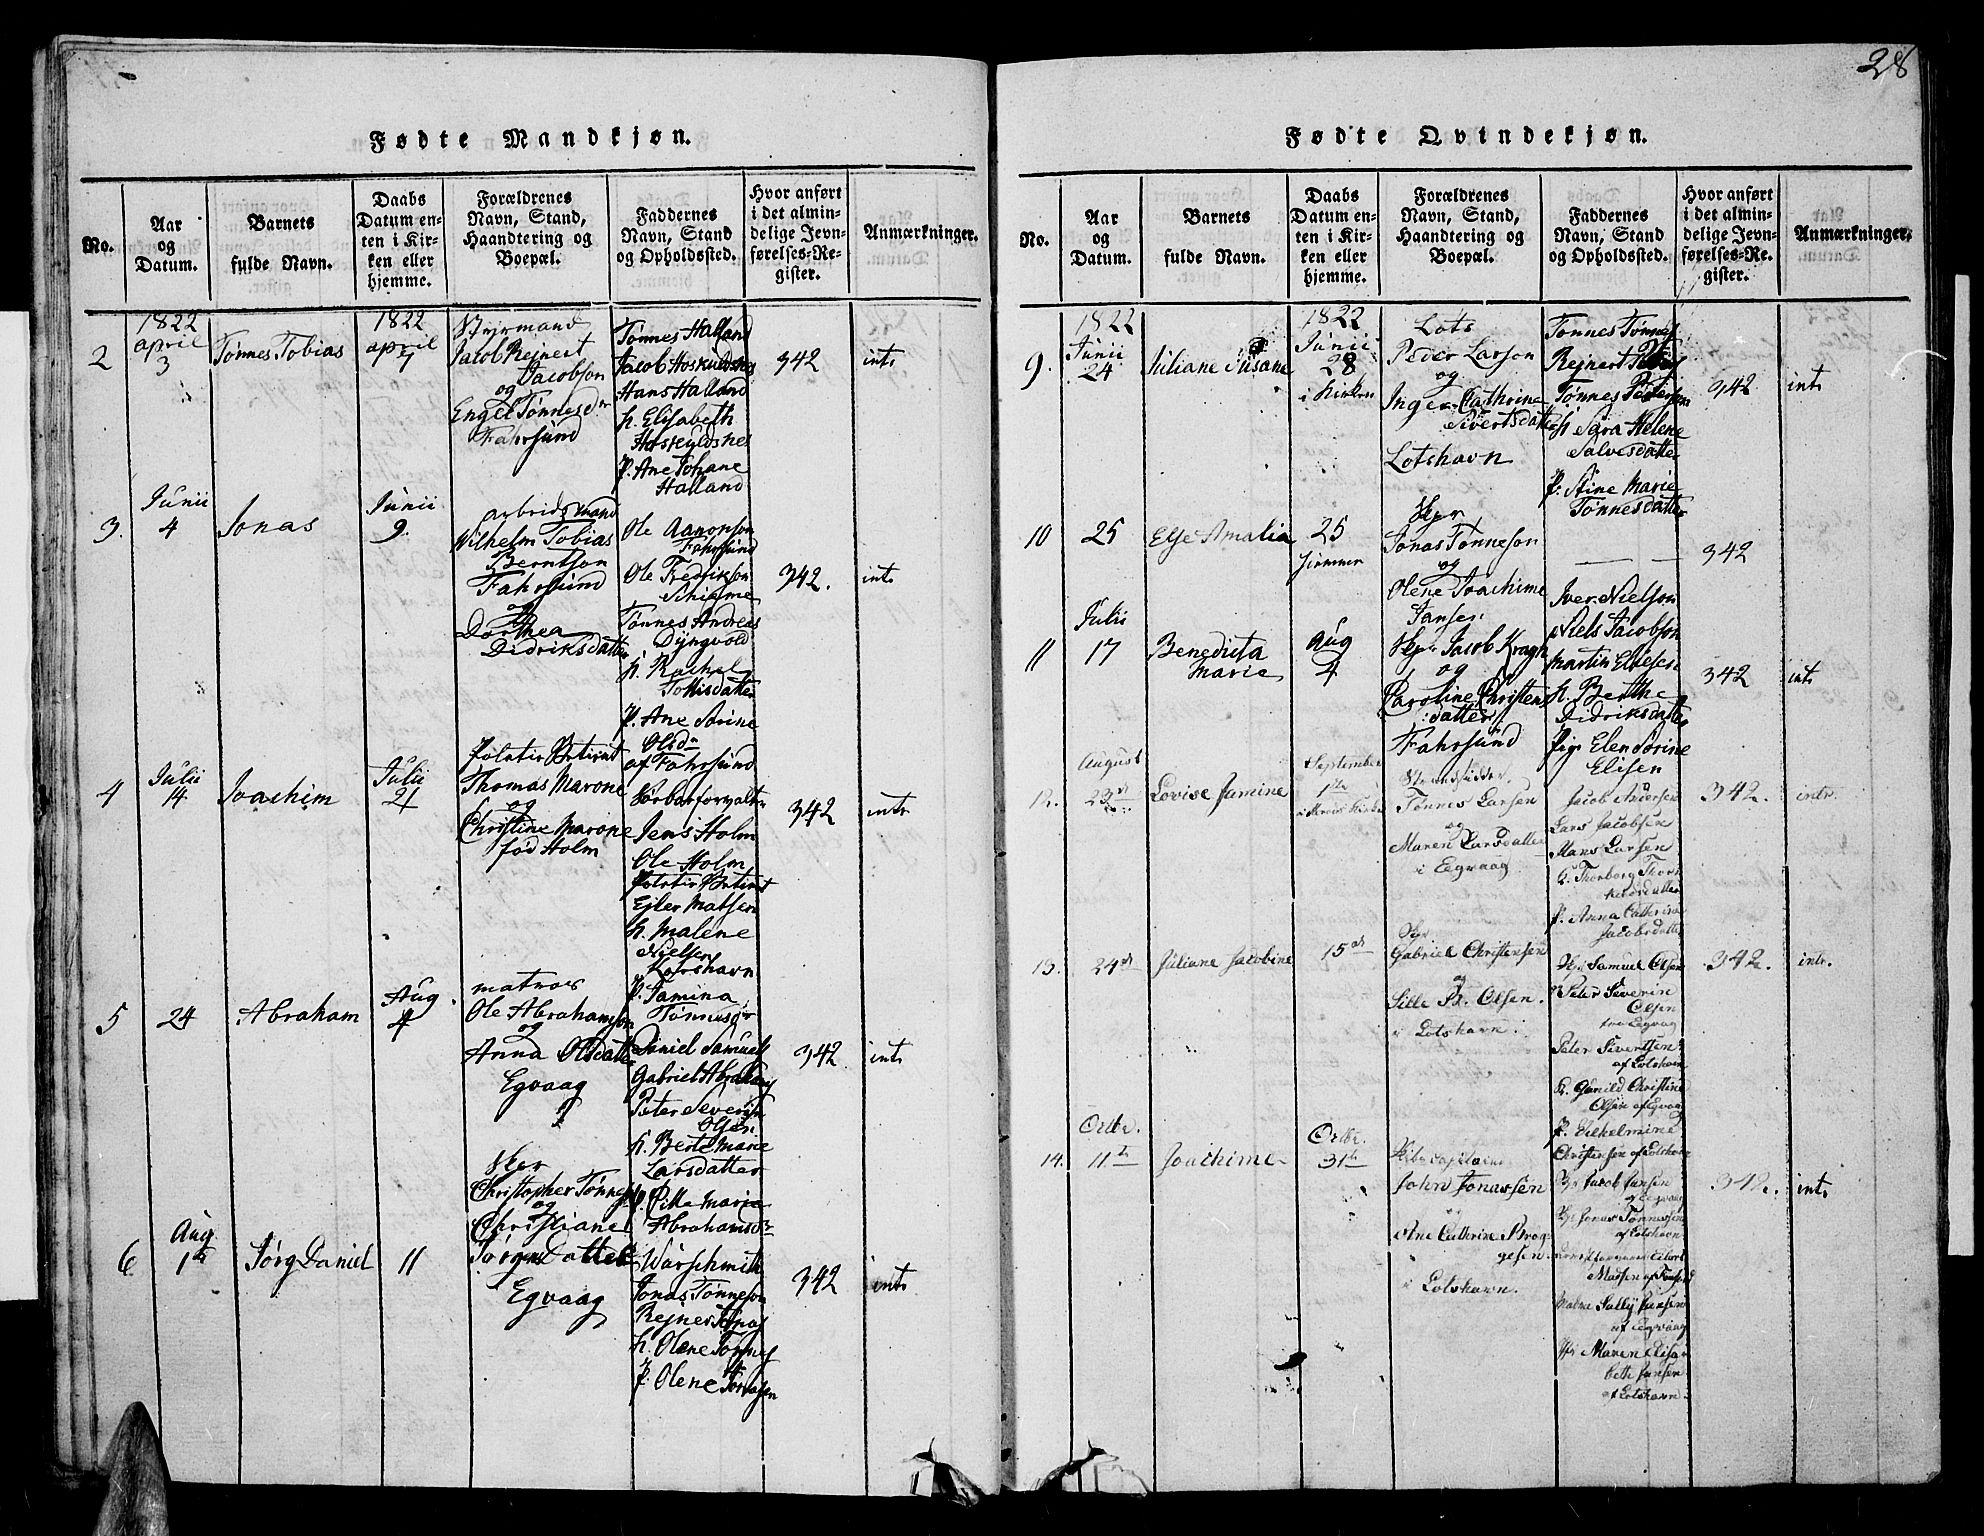 28
Fødte Mandkjøn.
No.
Aar
og
Datum.
Barnets
fulde Navn.
Daabs
Datum en-
ten i Kir-
ken eller
hjemme.
Forældrenes
Navn, Stand,
Haandtering og
Boepæl.
Faddernes
Navn, Stand
og Opholdssted.
Hvor anført
i det almin-
delige Jevn-
førelses-Re-
gister.
Anmærkninger.
2
1822
april
3
Tønnes Tobias
1822
april
7
Styrmand
Jacob Rejnert
Jacobson
og
Engel Tønnesdr
Fahrsund
Tønnes Halland
Jacob Hoskuldsnes
Hans Halland
h. Elisabeth
Hoskuldsnes
P. Ane Johane
Halland
342
intr
3.
Junii
4
Jonas
Junii
9.
arbeidsmand
Wilhelm Tobias
Berntson
Fahrsund
og
Dorthea
Didriksdatter
Ole Aanonson
Fahrsund
Ole Fredrikson
Tønnes Andreas
Dyngvold
h. Rachel
Tollisdatter
P. Ane Sorine
Olsdr
af Fahrsund
342.
intr
4
Julii
14
Joachim
Julii
21
Thomas Marone
og
Christine Marone
fød Holm
Jens Holm
Ole Holm
Ejler Matsen
h. Malene
Nielsen
Lotshavn
P. Jamina
Tønnesdr
342
intr
5
24
Abraham
Aug.
4
matros
Ole Abrahamson
og
Anna Olsdatter
Egvaag
Daniel Samuels
Gabriel Abrahams
Peter Severin
Olsen
h. Berte Marie
Larsdatter
P. Sille Marie
Abrahamsdr
342
intr
6
Aug
1te
Jørg Daniel
11
Skpr
Christopher Tønnes
og
Christiane
Jørgens Datter
Egvaag
Warschmith
Jonas Tønneson
Rejner Jonas
h. Olene Tønnes
P. Olene Jonasen
342
intr
Fødte Qvindekjøn.
No.
Aar
og
Datum.
Barnets
fulde Navn.
Daabs
Datum en-
ten i Kir-
ken eller
hjemme.
Forældrenes
Navn, Stand,
Haandtering og
Boepæl.
Faddernes
Navn, Stand
og Opholdssted.
Hvor anført
i det almin-
delige Jevn-
førelses-Re-
gister.
Anmærkninger.
9.
1822
Junii
24
Juliane Susane
1822
Junii
28
i Kirken
Lots
Peder Larson
og
Inger Cathrine
Sivertsdatter
Lotshavn
Tønnes Tønnes
Rejnert
Tønnes Pedersen
h Sara Helene
Salvesdatter
P. Stine Marie
Tønnesdatter
342
intr
10
25
Else Amalia
25
hjemmen
Skpr
Jonas Tønneson
og
Olene Joachime
Jansen
342
11
Julii
17
Benedicta
Marie
Aug
4
Skpr Jacob Kragh
og
Caroline Christens
datter
Fahrsund
Iver Nielson
Niels Jacobson
Martin Elisesen
h. Berthe
Didriksdatter
Pige Elen Sørine
Elisen
342
intr
12.
August
23de
Lovise Jamine
September
1ste
Strandsidder
Tønnes Larsen
og
Maren Larsdatter
i Eegvaag
Jacob Andersen
Lars Jacobsen
Mans Larsen
K. Thorborg
P. Anna Cathrine
Jacobsdatter
342.
intr.
13.
24de
Juliane Jacobine
15de
Skpr
Gabriel Christensen
og
Sille B. Olsen.
i Lotshavn.
Skpr Samuel Olsen
Peter Severin
Olsen
fra Eegvaag
Peter Sivertsen
af Lotshavn
K. Gunild Christine
Olsen af Egvaag
P. Vilhelmine
Christensen af Lotshavn
342.
intr.
14.
Octbr.
11te
Joachime
Octbr.
31te
Skibscapitain
John Jonassen
og
Ane Cathrine Brog
gesen.
i Lotshavn.
Skpr Jacob Jansen
af Eegvaag
Skpr Jonas Tønnessen
af Lotshavn
Madsen af Farsund
Madme Sally Jansen
af Eegvaag
Jfr Maren Elisa
beth Jansen
af Lotshavn.
342.
intr